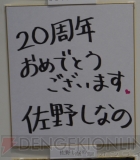 20周年
おめでとう
ございます。
佐野しなの
DENGEKIONLINE